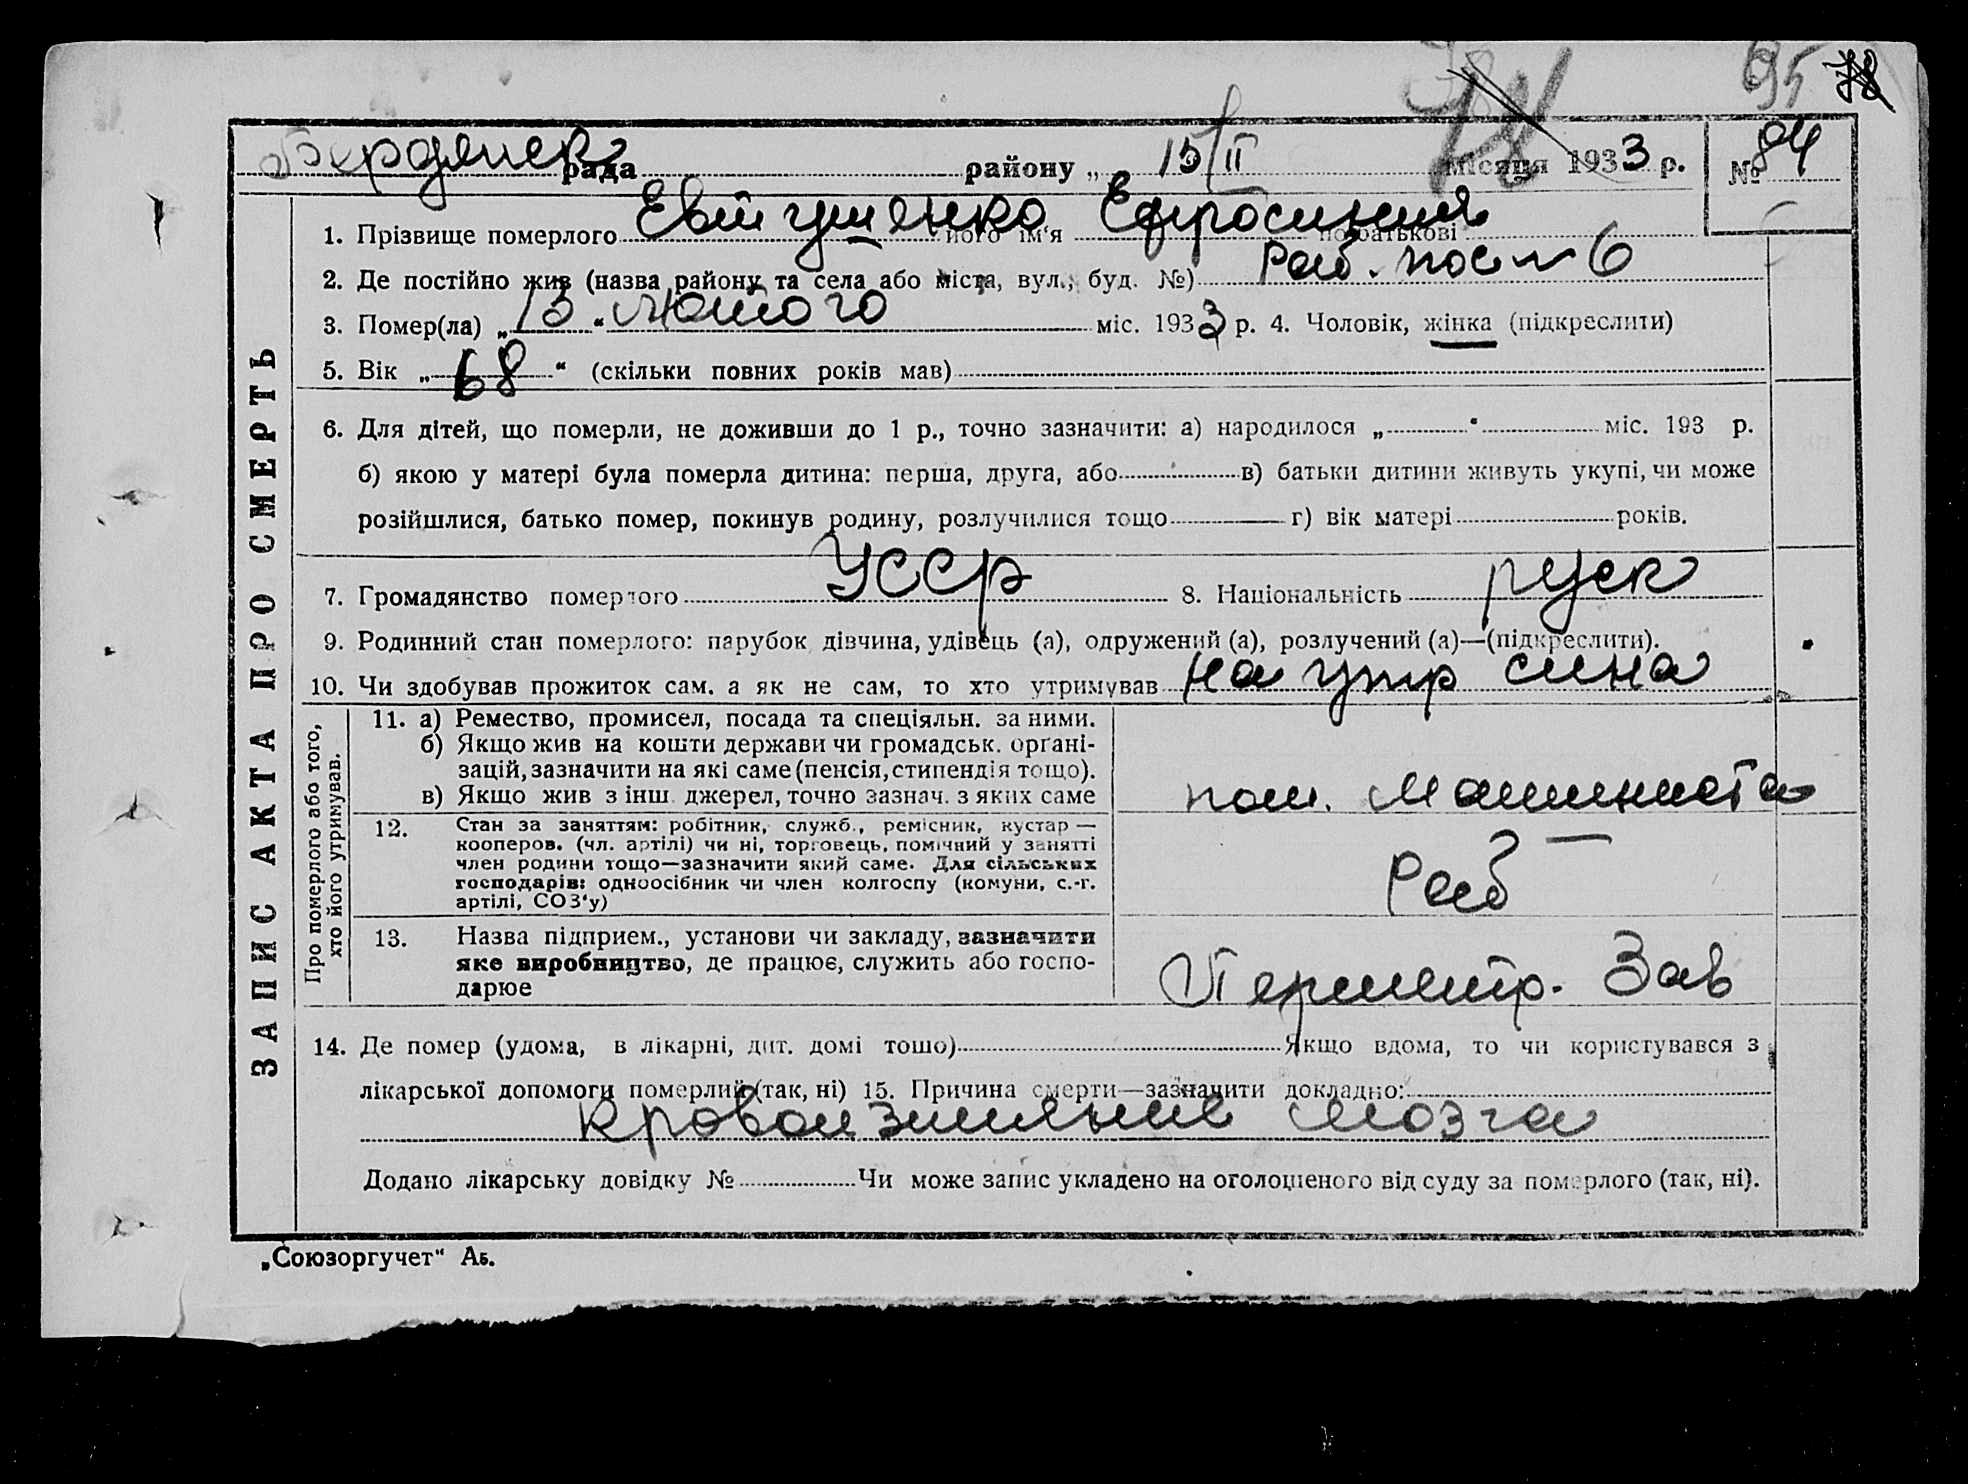 95 78
Бердянск рада району „ 15/II місяця 1933 р. № 84
ЗАПИС АКТА ПРО СМЕРТЬ
1. Прізвище померлого Евтушенко його ім'я Ефросиния по батькові
2. Де постійно жив (назва району та села або міста, вул., буд. №) Раб. пос 6
3. Помер(ла) „13“ лютого міс. 1933 р. 4. Чоловік, жінка (підкреслити)
5. Вік „68“ (скільки повних років мав)
6. Для дітей, що померли, не доживши до 1 р., точно зазначити: а) народилося „ “ міс. 193 р.
б) якою у матері була померла дитина: перша, друга, або в) батьки дитини живуть укупі, чи може
розійшлися, батько помер, покинув родину, розлучилися тощо г) вік матері років.
7. Громадянство померлого УССР 8. Національність руск
9. Родинний стан померлого: парубок, дівчина, удівець (а), одружений (а), розлучений (а)—(підкреслити).
10. Чи здобував прожиток сам, а як не сам, то хто утримував на утр сина
Про померлого або того,
хто його утримував.
11. а) Ремество, промисел, посада та спеціяльн. за ними.
б) Якщо жив на кошти держави чи громадськ. орґані-
зацій, зазначити на які саме (пенсія, стипендія тощо).
в) Якщо жив з інш. джерел, точно зазнач. з яких саме
пом. машиниста
12. Стан за заняттям: робітник, служб., ремісник, кустар —
кооперов. (чл. артілі) чи ні, торговець, помічний у занятті
член родини тощо—зазначити який саме. Для сільських
господарів: одноосібник чи член колгоспу (комуни, с.-г.
артілі, СОЗ'у)
Раб
13. Назва підприєм., установи чи закладу, зазначити
яке виробництво, де працює, служить або госпо-
дарює
Зав
14. Де помер (удома, в лікарні, дит. домі тощо) Якщо вдома, то чи користувався з
лікарської допомоги померлий (так, ні) 15. Причина смерти—зазначити докладно:
кровоизлияние мозга
Додано лікарську довідку № Чи може запис укладено на оголошеного від суду за померлого (так, ні).
„Союзоргучет“ Аь.